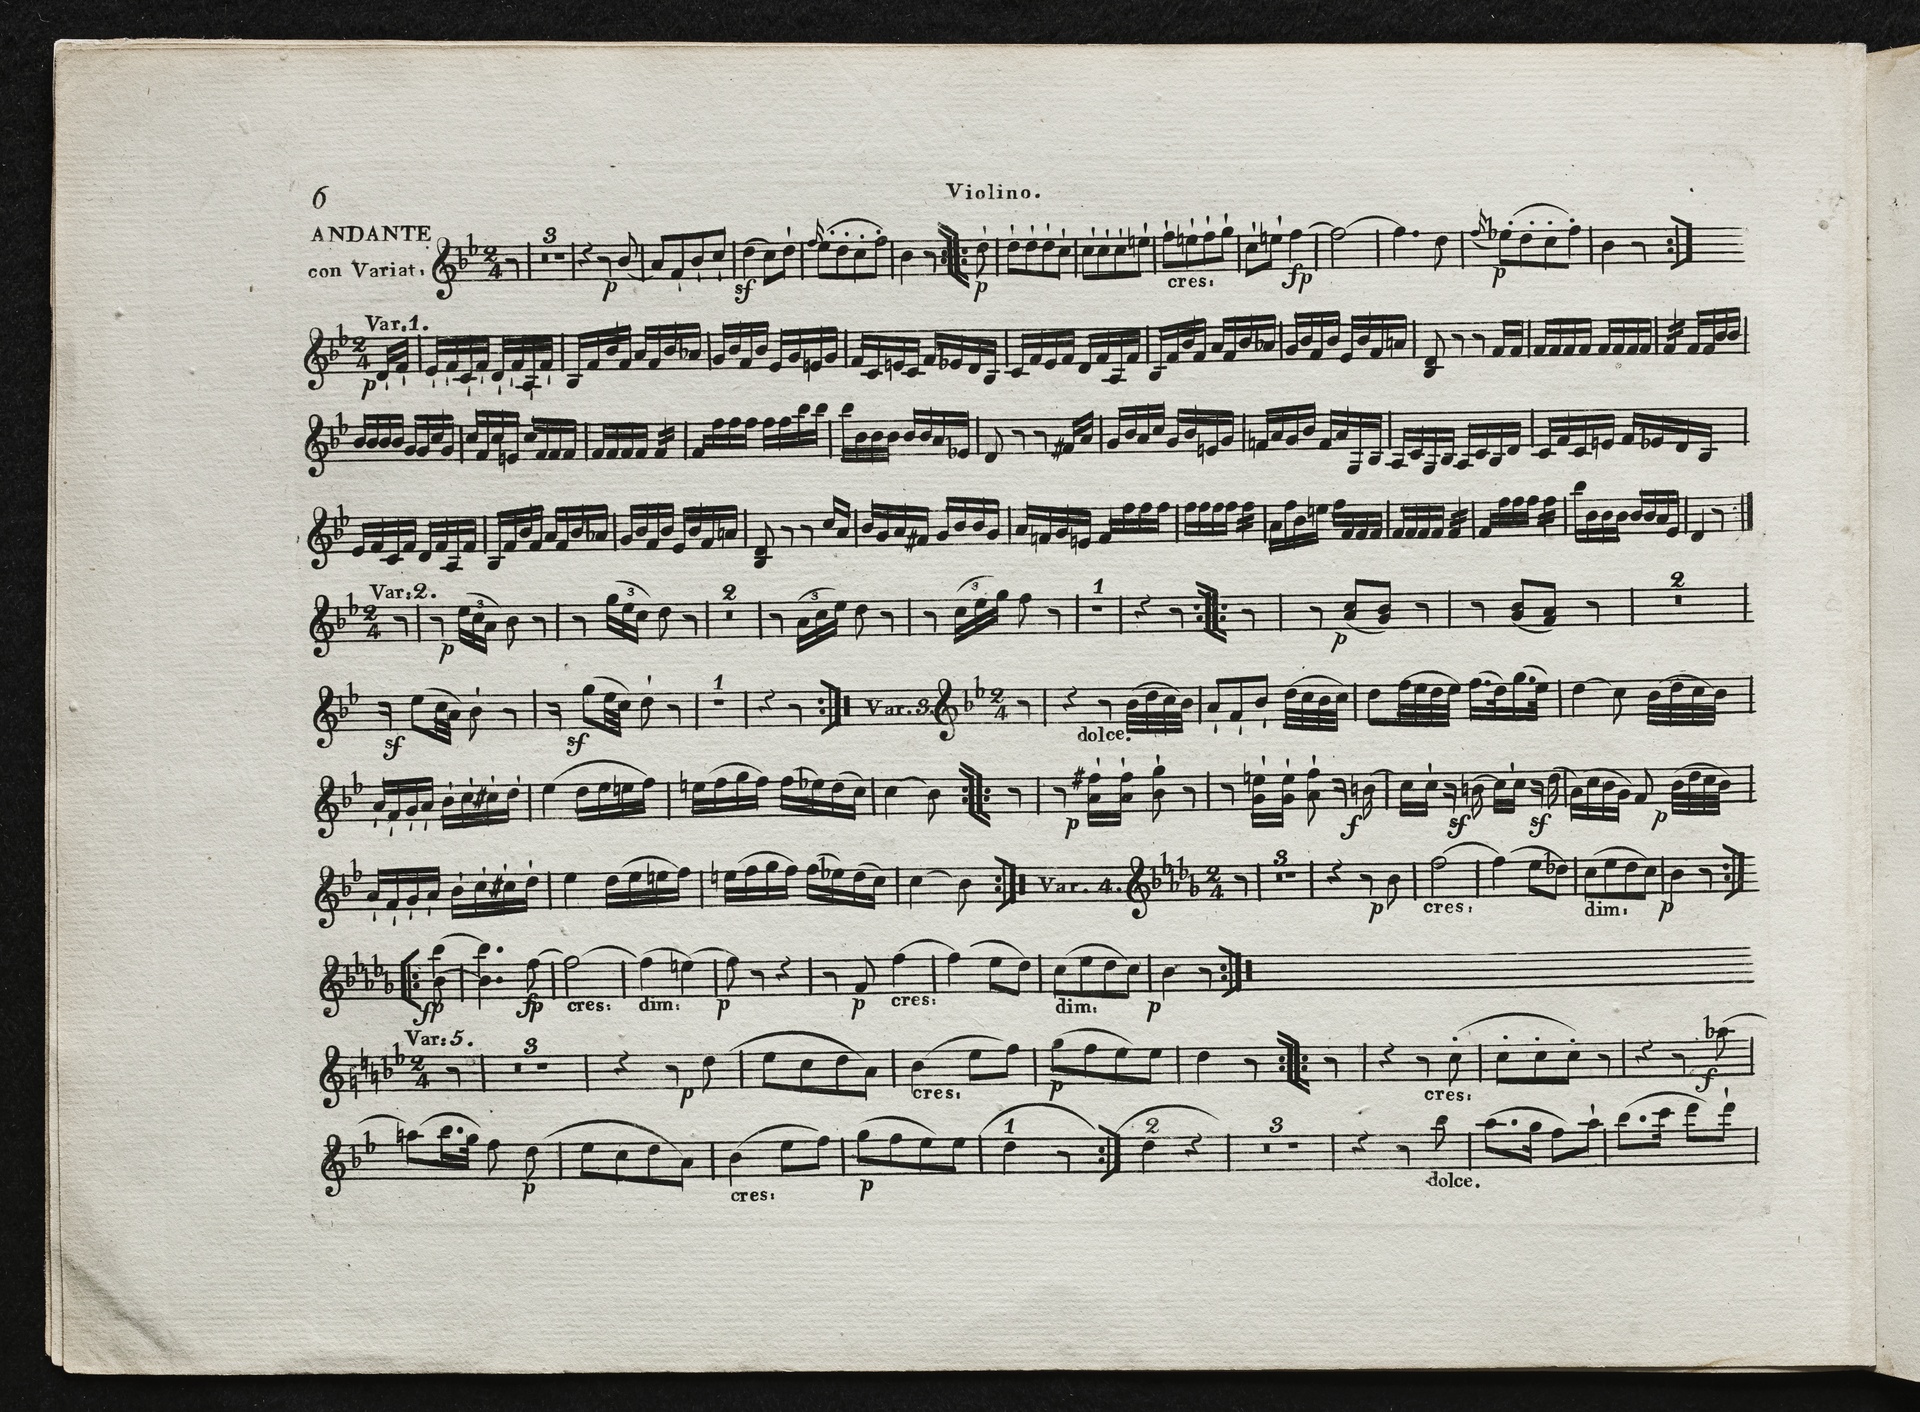 6
Violino.
ANDANTE
con Variat:
2 4 3
p sf p cres: fp p
Var.1.
2 4
p
Var:2.
2 4 3 3 2 3 3 1 2
p p
1 Var.3. 2 4
sf sf dolce.
p f sf sf p
Var. 4. 2 4 3
p cres: dim: p
fp fp cres: dim: p p cres: dim: p
Var:5.
2 4 3
p cres: p cres: f
1 2 3
p cres: p dolce.